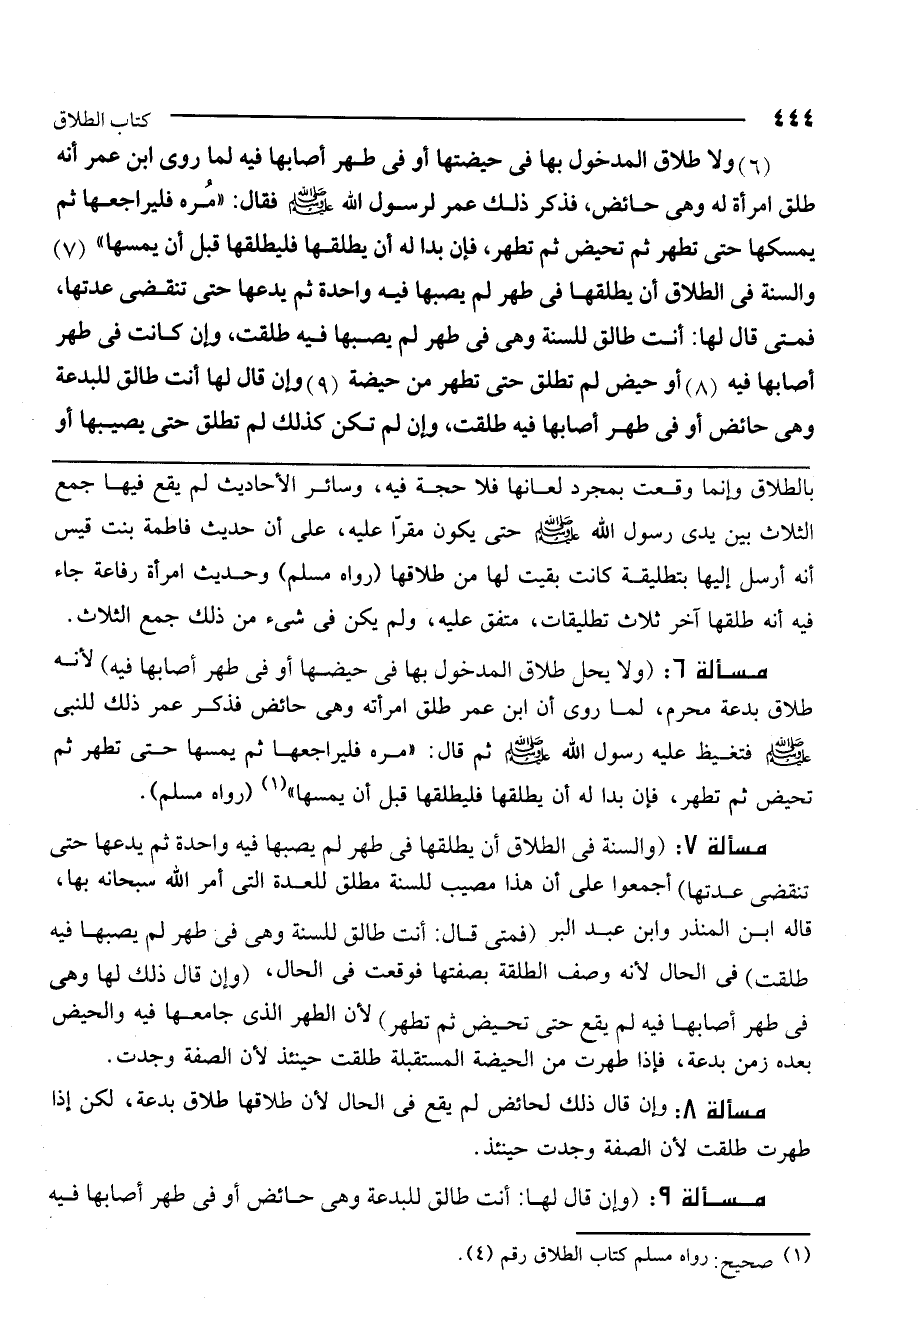 ٤٤٤ كتاب الطلاق
(٦) ولا طلاق المدخول بها فى حيضتها أو فى طهر أصابها فيه لما روى ابن عمر أنه
طلق امرأة له وهى حائض، فذكر ذلك عمر لرسول الله ﷺ فقال: «مُره فليراجعها ثم
يمسكها حتى تطهر ثم تحيض ثم تطهر، فإن بدا له أن يطلقها فليطلقها قبل أن يمسها» (٧)
والسنة فى الطلاق أن يطلقها فى طهر لم يصبها فيه واحدة ثم يدعها حتى تنقضى عدتها،
فمتى قال لها: أنت طالق للسنة وهى فى طهر لم يصبها فيه طلقت، وإن كانت فى طهر
أصابها فيه (٨) أو حيض لم تطلق حتى تطهر من حيضة (٩) وإن قال لها أنت طالق للبدعة
وهى حائض أو فى طهر أصابها فيه طلقت، وإن لم تكن كذلك لم تطلق حتى يصيبها أو
بالطلاق وإنما وقعت بمجرد لعانها فلا حجة فيه، وسائر الأحاديث لم يقع فيها جمع
الثلاث بين يدى رسول الله ﷺ حتى يكون مقرّا عليه، على أن حديث فاطمة بنت قيس
أنه أرسل إليها بتطليقة كانت بقيت لها من طلاقها (رواه مسلم) وحديث امرأة رفاعة جاء
فيه أنه طلقها آخر ثلاث تطليقات، متفق عليه، ولم يكن فى شىء من ذلك جمع الثلاث.
مسألة ٦: (ولا يحل طلاق المدخول بها فى حيضها أو فى طهر أصابها فيه) لأنه
طلاق بدعة محرم، لما روى أن ابن عمر طلق امرأته وهى حائض فذكر عمر ذلك للنبى
ﷺ فتغيظ عليه رسول الله ﷺ ثم قال: «مره فليراجعها ثم يمسها حتى تطهر ثم
تحيض ثم تطهر، فإن بدا له أن يطلقها فليطلقها قبل أن يمسها»(١) (رواه مسلم).
مسألة ٧: (والسنة فى الطلاق أن يطلقها فى طهر لم يصبها فيه واحدة ثم يدعها حتى
تنقضى عدتها) أجمعوا على أن هذا مصيب للسنة مطلق للعدة التى أمر الله سبحانه بها،
قاله ابن المنذر وابن عبد البر (فمتى قال: أنت طالق للسنة وهى فى طهر لم يصبها فيه
طلقت) فى الحال لأنه وصف الطلقة بصفتها فوقعت فى الحال، (وإن قال ذلك لها وهى
فى طهر أصابها فيه لم يقع حتى تحيض ثم تطهر) لأن الطهر الذى جامعها فيه والحيض
بعده زمن بدعة، فإذا طهرت من الحيضة المستقبلة طلقت حينئذ لأن الصفة وجدت.
مسألة ٨: وإن قال ذلك لحائض لم يقع فى الحال لأن طلاقها طلاق بدعة، لكن إذا
طهرت طلقت لأن الصفة وجدت حينئذ.
مسألة ٩: (وإن قال لها: أنت طالق للبدعة وهى حائض أو فى طهر أصابها فيه
(١) صحيح: رواه مسلم كتاب الطلاق رقم (٤).